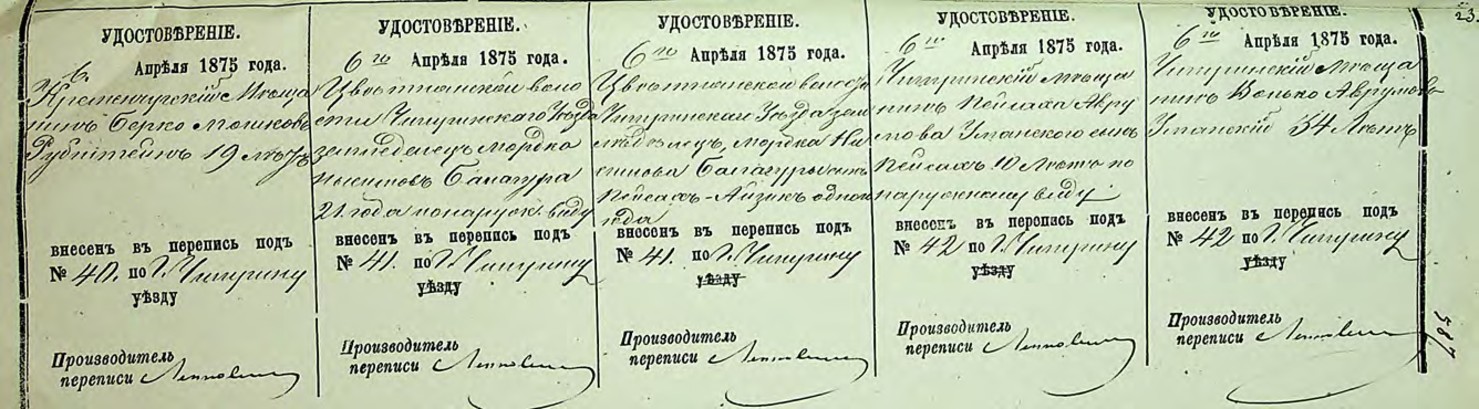 23.
УДОСТОВѢРЕНІЕ.
6. Апрѣля 1875 года.
Кременчугскій Мѣща
нинъ Берко Мошковъ
Рубнштейнъ 19 лѣтъ
внесенъ въ перепись подъ
№ 40. по г. Чигирину
уѣзду
Производитель
переписи
УДОСТОВѢРЕНІЕ.
6го Апрѣля 1875 года.
воло
сти Чигиринскаго Уѣзда
земледелецъ Мордко
Балагура
21. года по наруж. виду
внесенъ въ перепись подъ
№ 41. по г. Чигирину
уѣзду
Производитель
переписи
УДОСТОВѢРЕНІЕ.
6го Апрѣля 1875 года.
Чигиринскаго Уѣзда зем
Мордка
сынъ
Пейсахъ-Айзикъ одного
года
внесенъ въ перепись подъ
№ 41. по г. Чигирину
уѣзду
Производитель
переписи
УДОСТОВѢРЕНІЕ.
6го Апрѣля 1875 года.
Чигиринскій мѣща
нинъ Пейсаха Авру
мова Уманскаго сынъ
Пейсахъ 10 лѣтъ по
наружному виду
внесенъ въ перепись подъ
№ 42 по г. Чигирину
уѣзду
Производитель
переписи
УДОСТОВѢРЕНІЕ.
6го Апрѣля 1875 года.
Чигиринскій мѣща
нинъ Аврумовъ
Уманскій 34 лѣтъ
внесенъ въ перепись подъ
№ 42 по г. Чигирину
уѣзду
Производитель
переписи
587